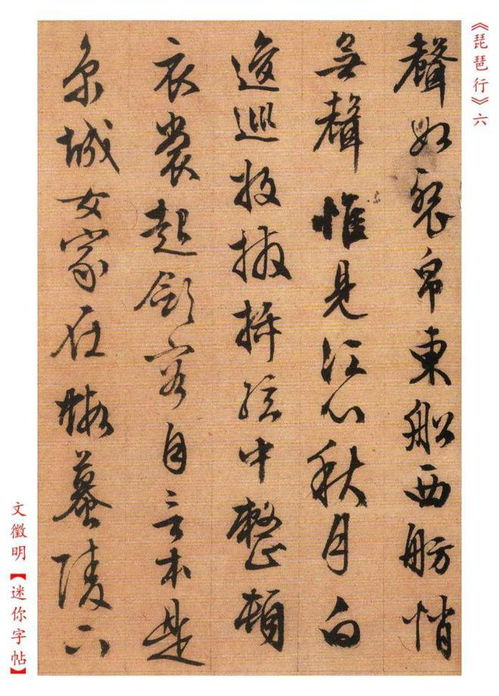 《琵琶行》六
聲如裂帛東船西舫悄
無聲惟見江心秋月白
逡巡放撥插絃中整頓
衣裳起斂容自言本是
京城女家在蝦蟇陵下
文徵明【迷你字帖】